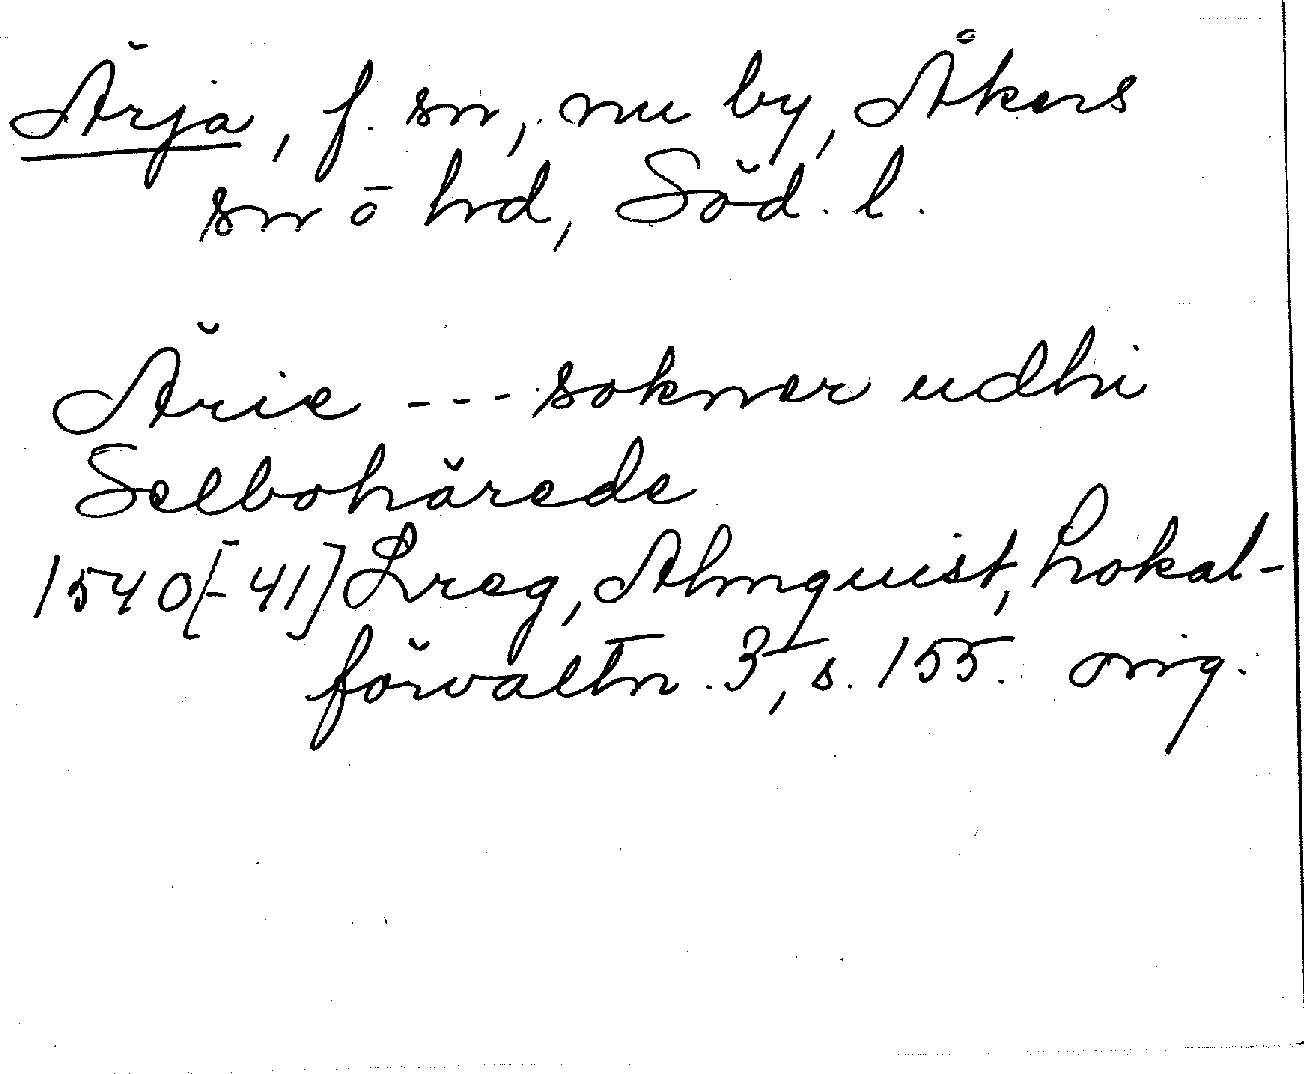 Ärja, f. sn, nu by, Åkers
sn o hd, Söd. l.
Ärie --- sokner udhi
Selbohärede
1540[-41] Lreg, Almquist, Lokal-
förvaltn. 3, s. 155. orig.